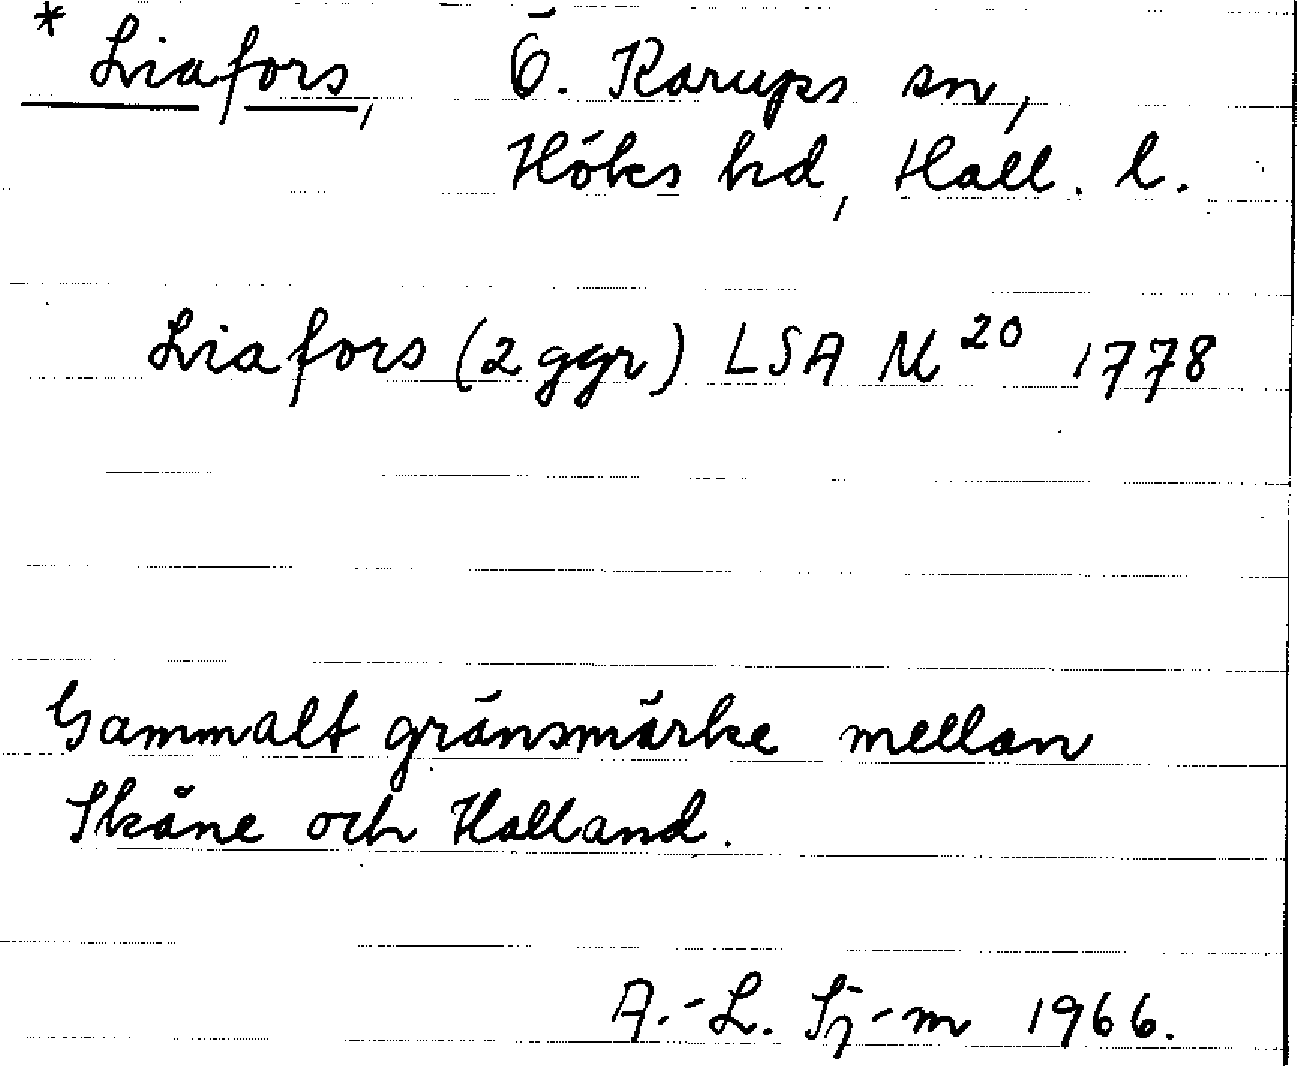 * Liafors, Ö. Karups sn,
Höks hd, Hall. l.
Liafors (2 ggr) LSA M²⁰ 1778
Gammalt gränsmärke mellan
Skåne och Halland.
A.-L. Sj-m 1966.